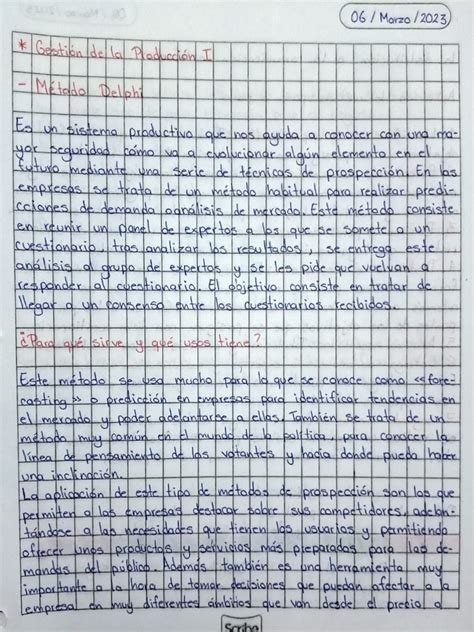 06 / Marzo / 2023
* Gestión de la Producción I
- Método Delphi
Es un sistema productivo que nos ayuda a conocer con una ma-
yor seguridad cómo va a evolucionar algún elemento en el
futuro mediante una serie de técnicas de prospección. En las
empresas se trata de un método habitual para realizar predi-
cciones de demanda o análisis de mercado. Este método consiste
en reunir un panel de expertos a los que se somete a un
cuestionario, tras analizar los resultados, se entrega este
análisis al grupo de expertos y se les pide que vuelvan a
responder al cuestionario. El objetivo consiste en tratar de
llegar a un consenso entre los cuestionarios recibidos.
¿Para qué sirve y qué usos tiene?
Este método se usa mucho para lo que se conoce como «fore-
casting» o predicción en empresas para identificar tendencias en
el mercado y poder adelantarse a ellas. También se trata de un
método muy común en el mundo de la política, para conocer la
línea de pensamiento de los votantes y hacia donde puede haber
una inclinación.
La aplicación de este tipo de métodos de prospección son los que
permiten a las empresas destacar sobre sus competidores, adelan-
tándose a las necesidades que tienen los usuarios y permitiendo
ofrecer unos productos y servicios más preparados para las de-
mandas del público. Además también es una herramienta muy
importante a la hora de tomar decisiones que puedan afectar a la
empresa en muy diferentes ámbitos que van desde el precio a
Scribe